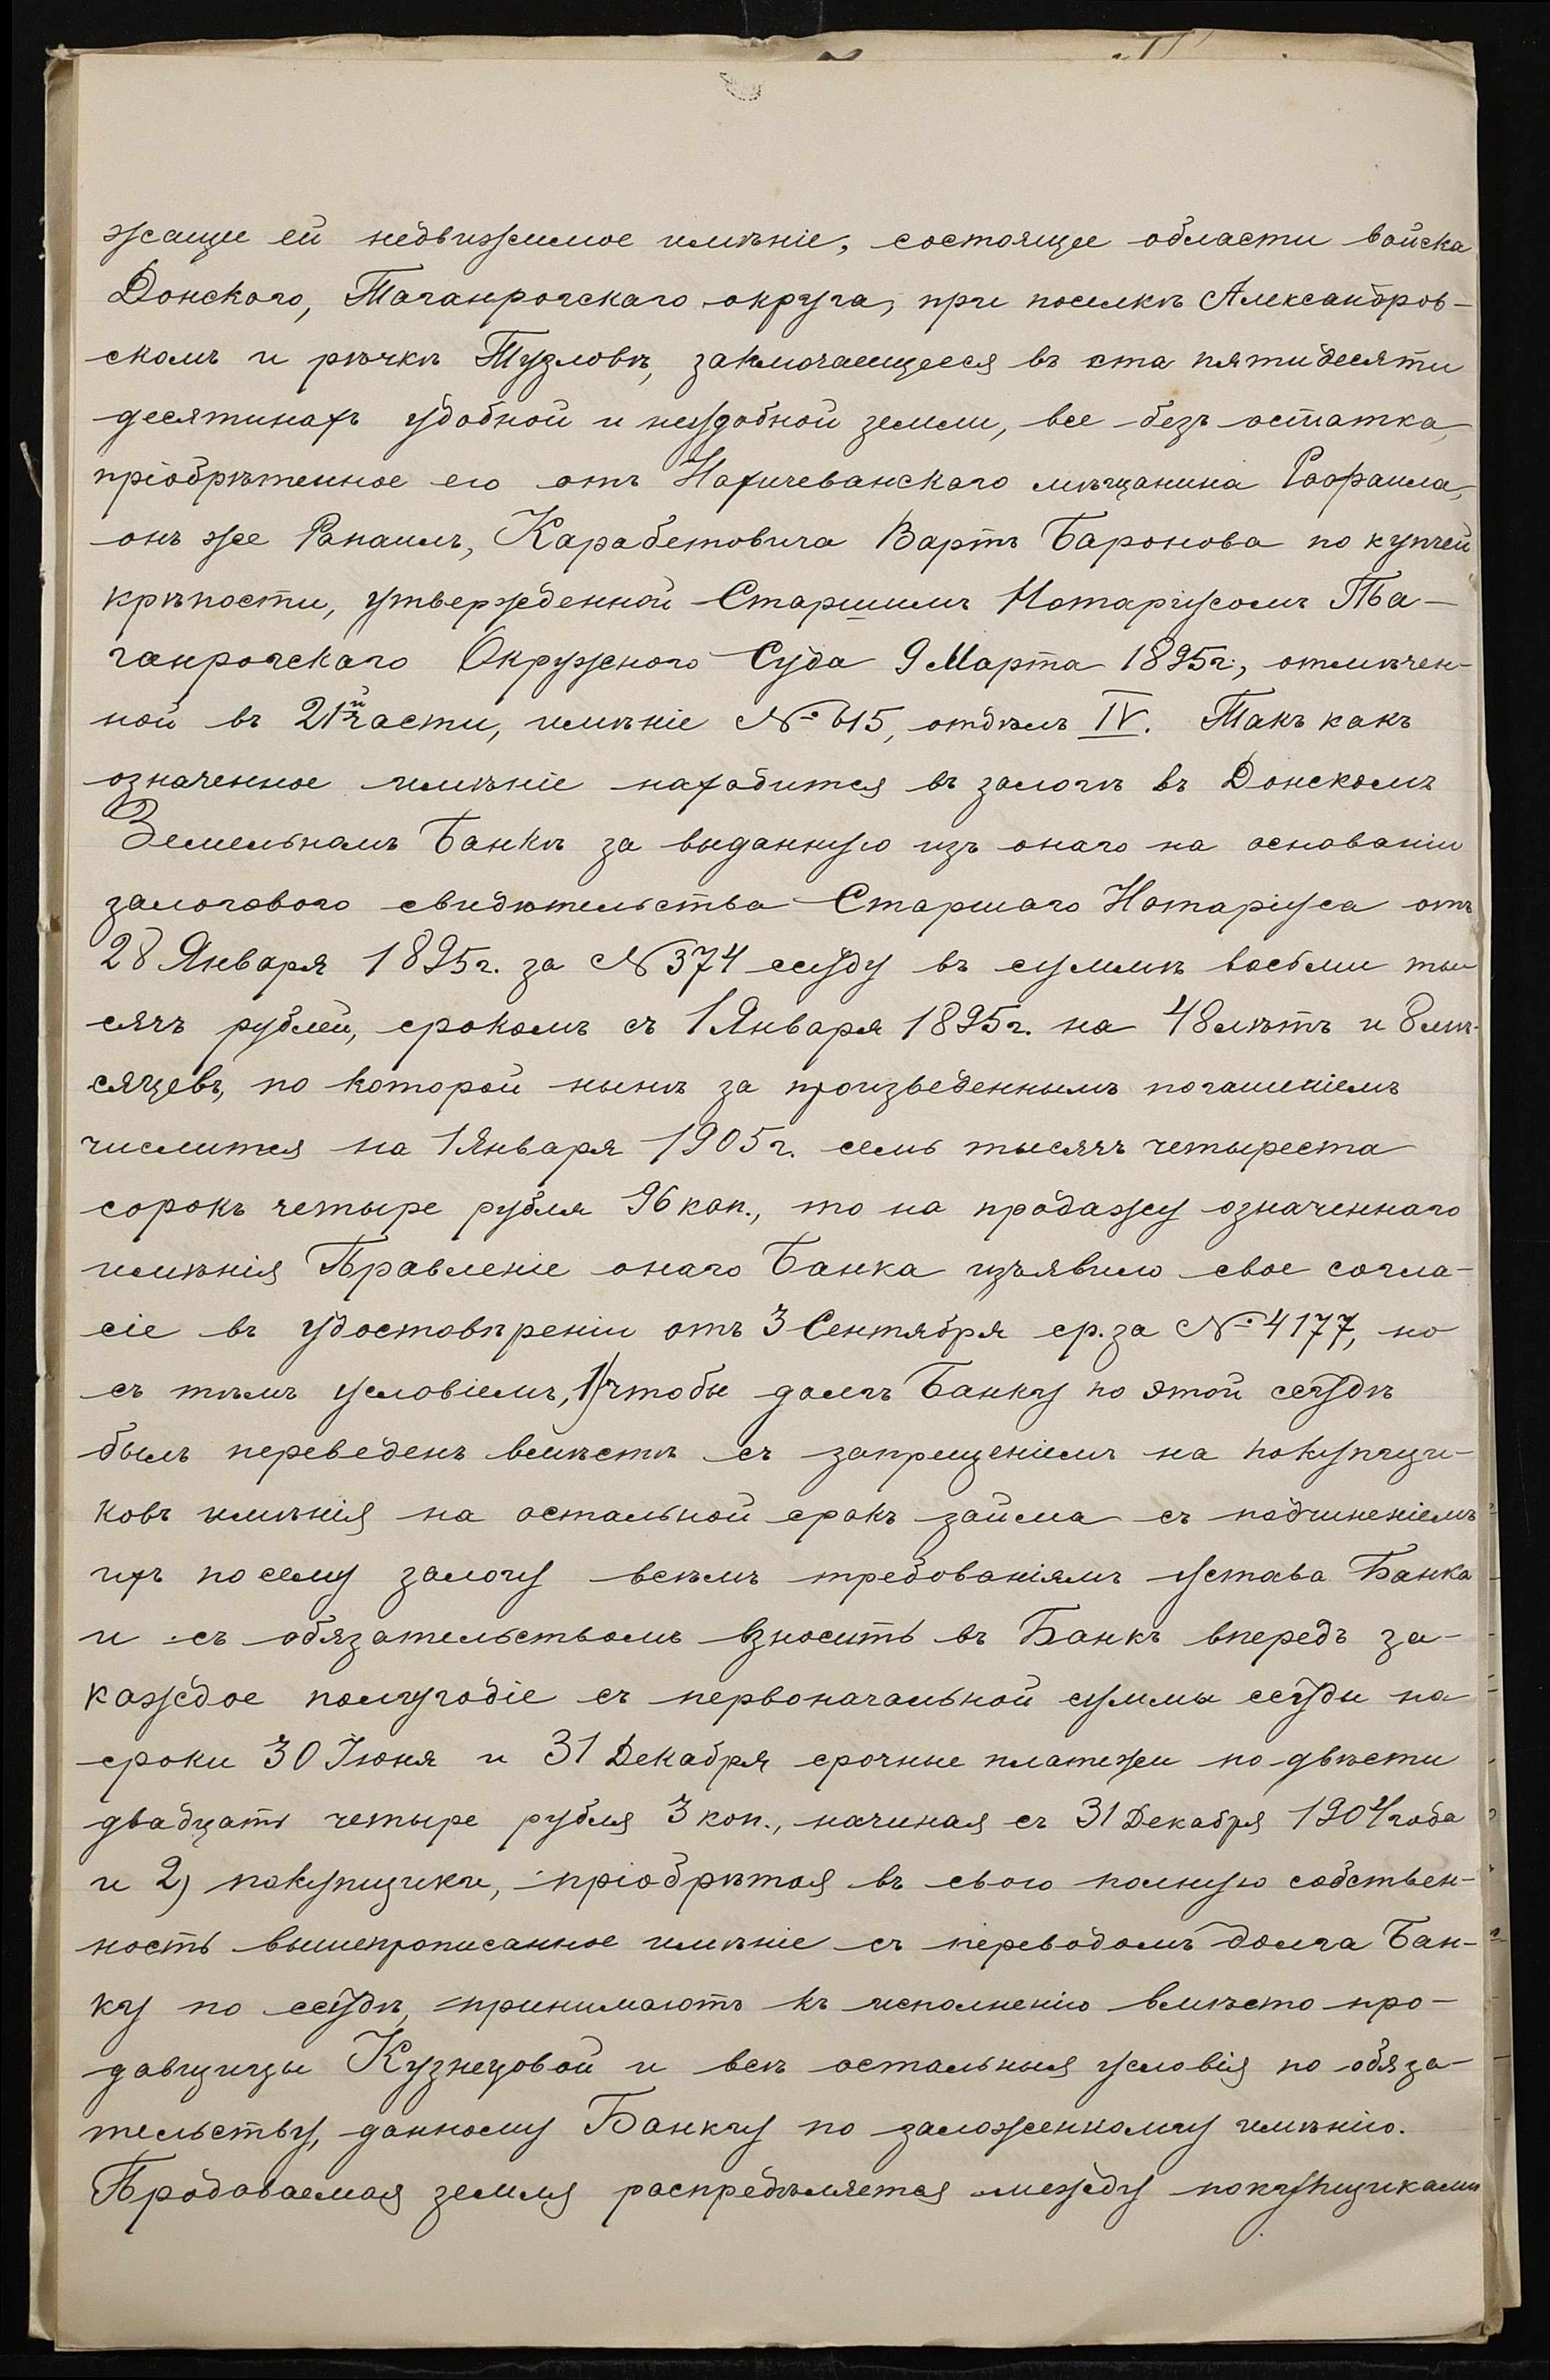 жащее ей недвижимое имѣніе, состоящее области войска
Донского, Таганрогскаго округа, при поселкѣ Александров-
скомъ и рѣчкѣ Тузловѣ, заключающееся въ ста пятидесяти
десятинахъ удобной и неудобной земли, все безъ остатка,
пріобрѣтенное ею отъ Нахичеванскаго мѣщанина Рафаила,
онъ же Рапаилъ, Карабетовича Вартъ Баронова по купчей
крѣпости, утвержденной Старшимъ Нотаріусомъ Та-
ганрогскаго Окружного Суда 9 Марта 1895г., отмѣчен-
ной въ 21й части, имѣніе № 615, отдѣлъ IV. Такъ какъ
означенное имѣніе находится въ залогѣ въ Донскомъ
Земельномъ Банкѣ за выданную изъ онаго на основаніи
залогового свидѣтельства Старшаго Нотаріуса отъ
28 Января 1895г. за № 374 ссуду въ суммѣ восьми ты-
сячъ рублей, срокомъ съ 1 Января 1895г. на 48 лѣтъ и 8 мѣ-
сяцевъ, по которой нынѣ за произведеннымъ погашеніемъ
числится на 1 Января 1905г. семь тысячъ четыреста
сорокъ четыре рубля 96 коп., то на продажу означеннаго
имѣнія Правленіе онаго Банка изъявило свое согла-
сіе въ удостовѣреніи отъ 3 Сентября с.г. за № 4177, но
съ тѣмъ условіемъ, 1) чтобы долгъ Банку по этой ссудѣ
былъ переведенъ вмѣстѣ съ запрещеніемъ на покупщи-
ковъ имѣнія на остальной срокъ займа съ подчиненіемъ
ихъ по сему залогу всѣмъ требованіямъ устава Банка
и съ обязательствомъ вносить въ Банкъ впередъ за-
каждое полугодіе съ первоначальной суммы ссуды на
сроки 30 Іюня и 31 Декабря срочные платежи по двѣсти
двадцать четыре рубля 3 коп., начиная съ 31 Декабря 1904 года
и 2) покупщики, пріобрѣтая въ свою полную собствен-
ность вышепрописанное имѣніе съ переводомъ долга Бан-
ку по ссудѣ, принимаютъ къ исполненію вмѣсто про-
давщицы Кузнецовой и всѣ остальныя условія по обяза-
тельству, данному Банку по заложенному имѣнію.
Продаваемая земля распредѣляется между покупщиками